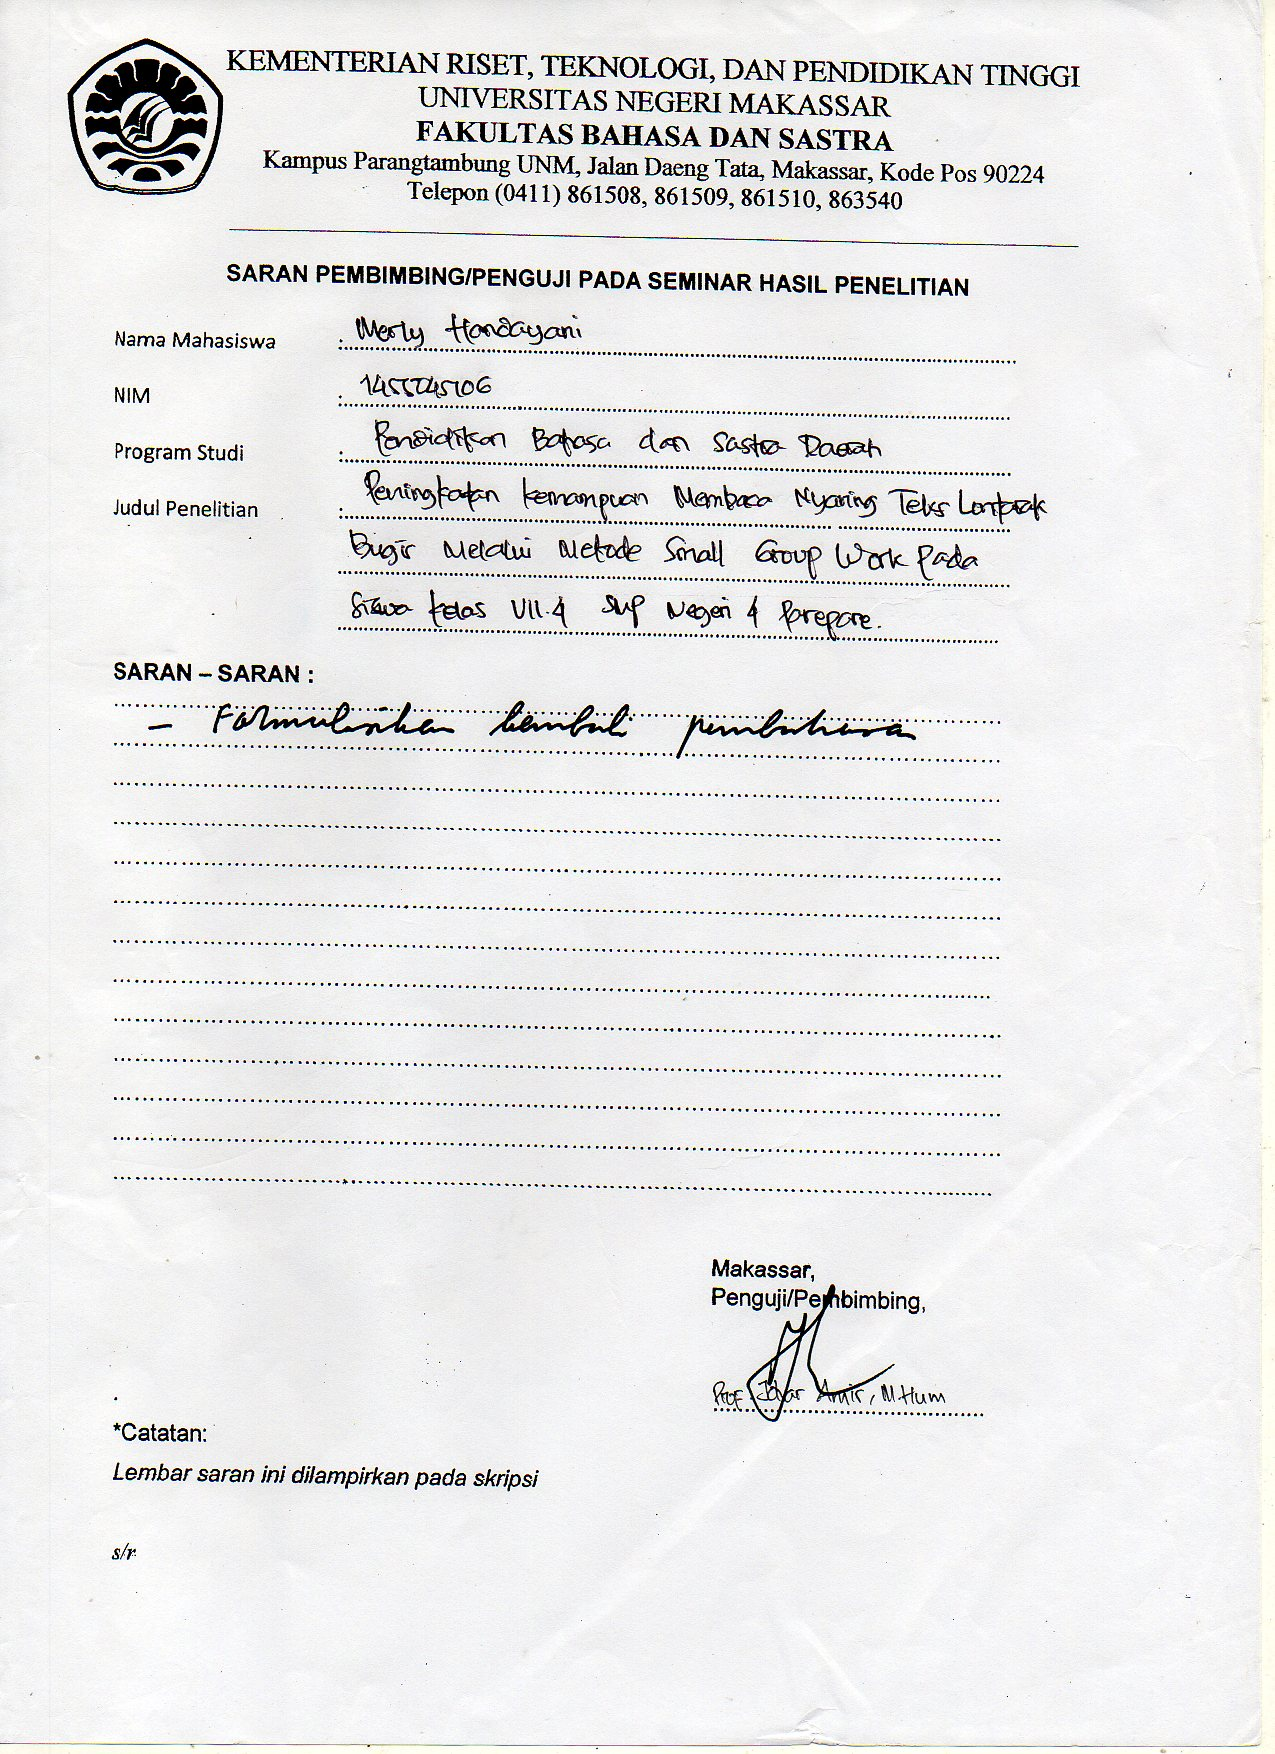 KEMENTERIAN RISET, TEKNOLOGI, DAN PENDIDIKAN TINGGI
UNIVERSITAS NEGERI MAKASSAR
FAKULTAS BAHASA DAN SASTRA
Kampus Parangtambung UNM, Jalan Daeng Tata, Makassar, Kode Pos 90224
Telepon (0411) 861508, 861509, 861510, 863540
SARAN PEMBIMBING/PENGUJI PADA SEMINAR HASIL PENELITIAN
Nama Mahasiswa : Merly Handayani
NIM :
Program Studi : Pendidikan Bahasa dan Sastra Daerah
Judul Penelitian : Peningkatan kemampuan Membaca Nyaring Teks Lontarak
Bugis Melalui Metode Small Group Work Pada
Siswa kelas VII.4 SMP Negeri 4 Parepare.
SARAN – SARAN :
- Formulasikan kembali pembahasan
Makassar,
Penguji/Pembimbing,
Prof. Johar Amir, M.Hum
*Catatan:
Lembar saran ini dilampirkan pada skripsi
s/r